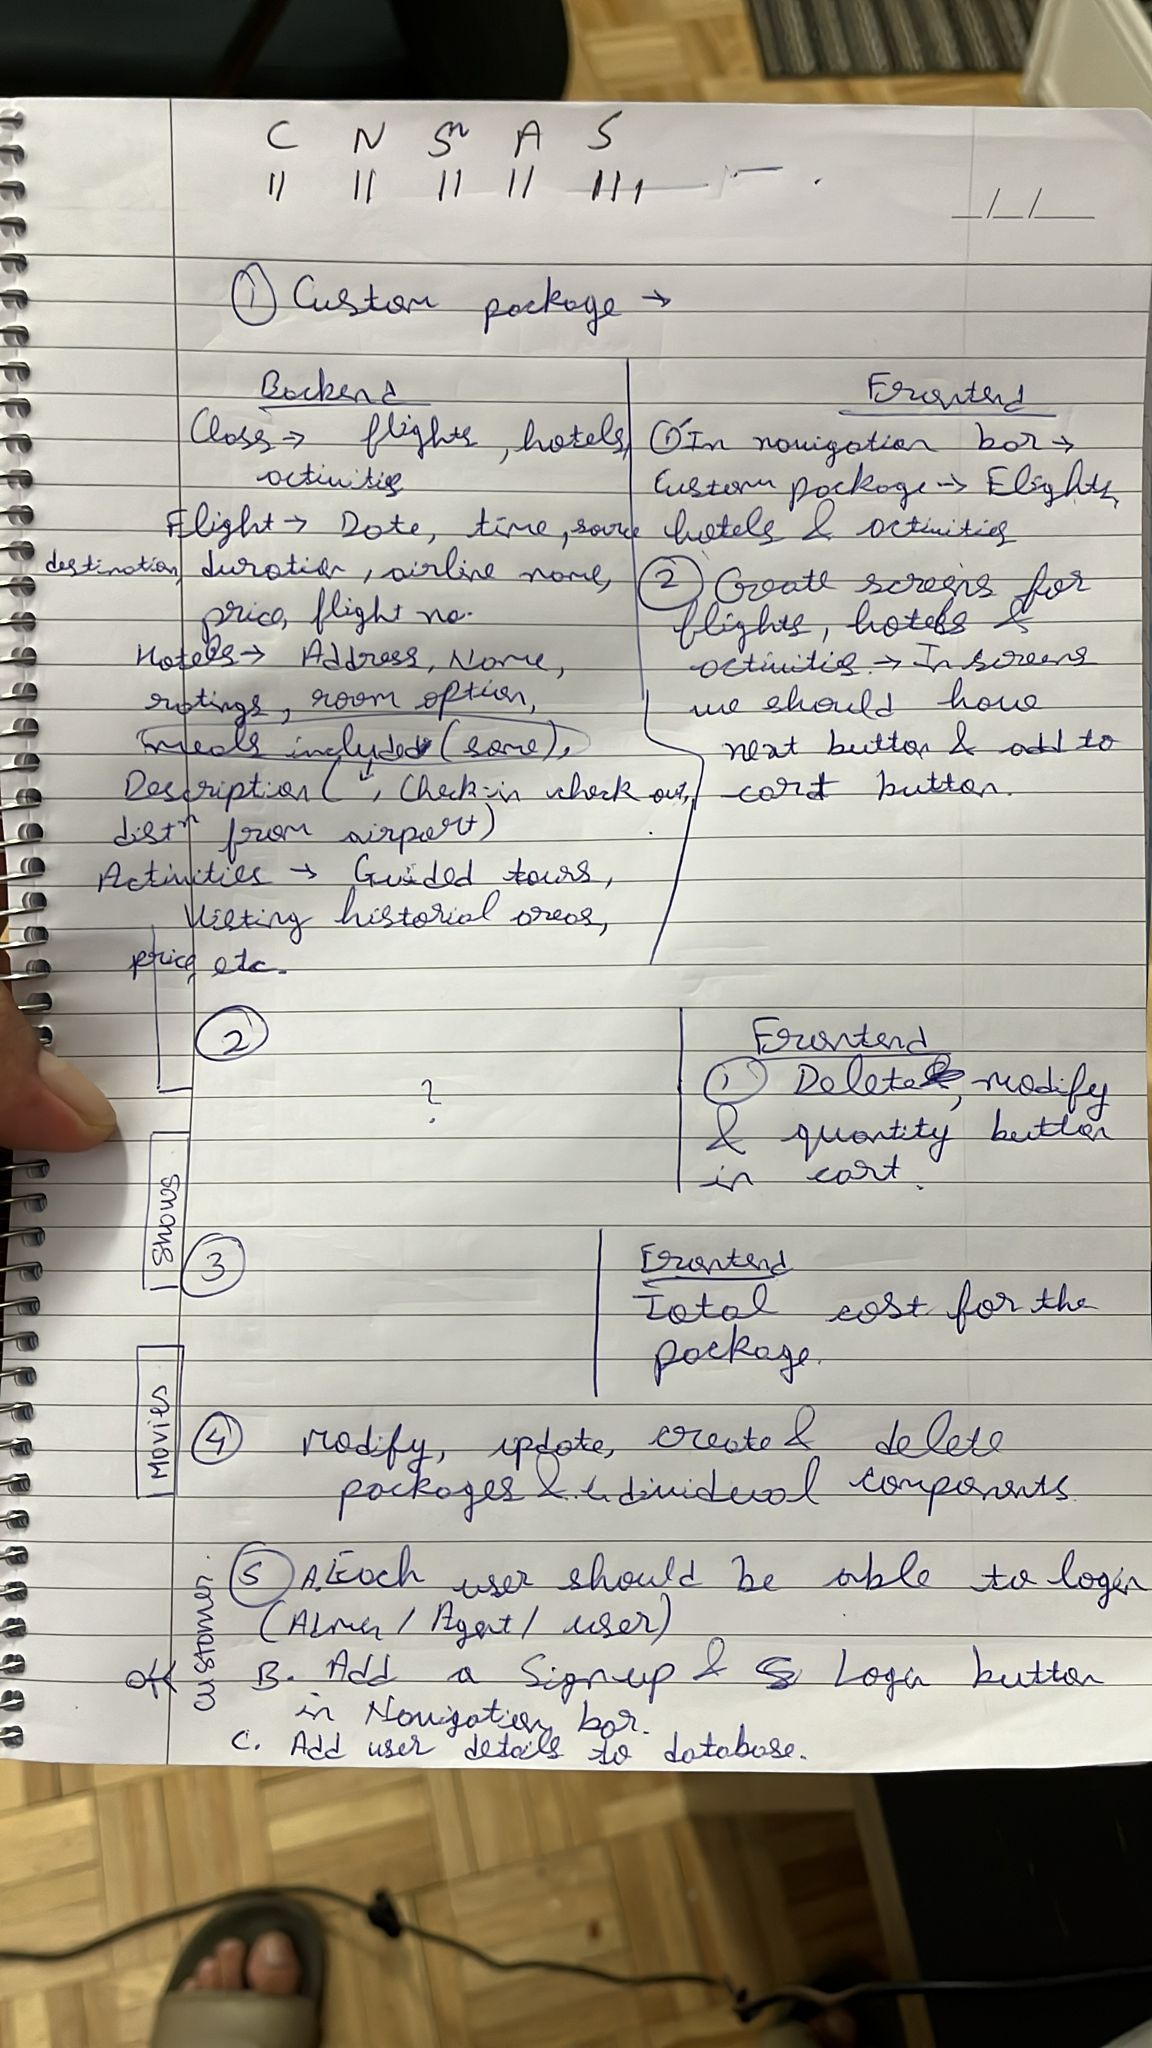 C N Sn A S
|| || || || |||
_/_/__
① Custom package →
Backend
Class → flights, hotels,
activities
Flight → Date, time, source
destination, duration, airline name,
price, flight no.
Hotels → Address, Name,
ratings, room option,
meals included (some),
Description ( , Check-in check out,
distn from airport)
Activities → Guided tours,
Visting historial areas,
price, etc.
Frontend
① In navigation bar →
Custom package → Flights,
hotels & activities
② Create screens for
flights, hotels &
activities. → In screens
we should have
next button & add to
card button.
②
?
Frontend
① Delete, modify
& quantity button
in cart.
Shows
③
Frontend
Total cost for the
package.
Movies
④ Modify, update, create & delete
packages & individual components.
Customer.
⑤ A. Each user should be able to login
( / Agent / user)
B. Add a Sign up & Login button
in Navigation bar.
C. Add user details to database.